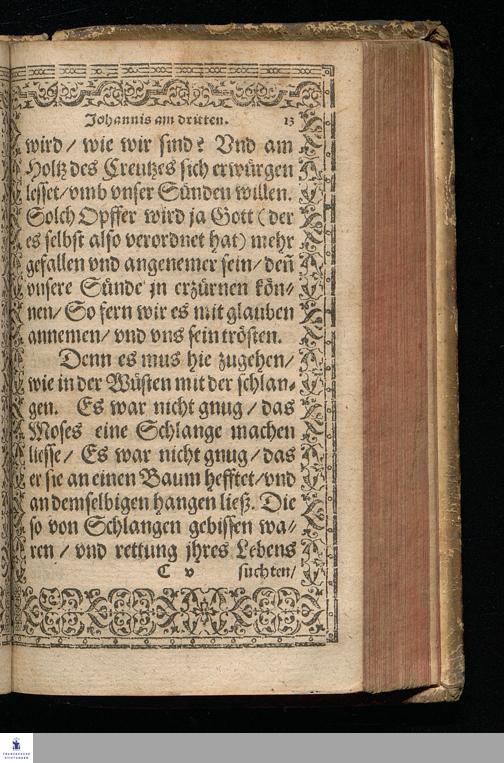 Johannis am dritten. 13
wird / wie wir sind? Vnd am
Holtz des Creutzes sich erwürgen
lesset / vmb vnser Sünden willen.
Solch Opffer wird ja Gott (der
es selbst also verordnet hat) mehr
gefallen vnd angenemer sein / deñ
vnsere Sünde jn erzürnen kön-
nen / So fern wir es mit glauben
annemen / vnd vns sein trösten.
Denn es mus hie zugehen /
wie in der Wüsten mit der schlan-
gen. Es war nicht gnug / das
Moses eine Schlange machen
liesse / Es war nicht gnug / das
er sie an einen Baum hefftet / vnd
an demselbigen hangen ließ. Die
so von Schlangen gebissen wa-
ren / vnd rettung jhres Lebens
C v suchten /
FRANCKESCHE
STIFTUNGEN